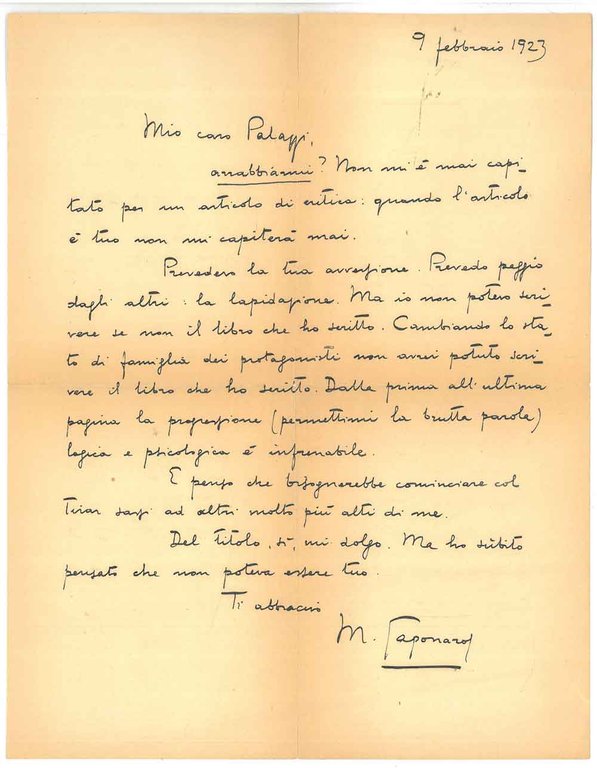 9 febbraio 1923
Mio caro Palazzi,
arrabbiarmi? Non mi è mai capi-
tato per un articolo di critica: quando l'articolo
è tuo non mi capiterà mai.
Prevedevo la tua avversione. Prevedo peggio
dagli altri: la lapidazione. Ma io non potevo scri-
vere se non il libro che ho scritto. Cambiando lo sta-
to di famiglia dei protagonisti non avrei potuto scri-
vere il libro che ho scritto. Dalla prima all'ultima
pagina la progressione (permettimi la brutta parola)
logica e psicologica è infrenabile.
E penso che bisognerebbe cominciare col
tirar sassi ad altri molto più alti di me.
Del titolo, sì, mi dolgo. Ma ho sùbito
pensato che non poteva essere tuo.
Ti abbraccio
M. Saponaro